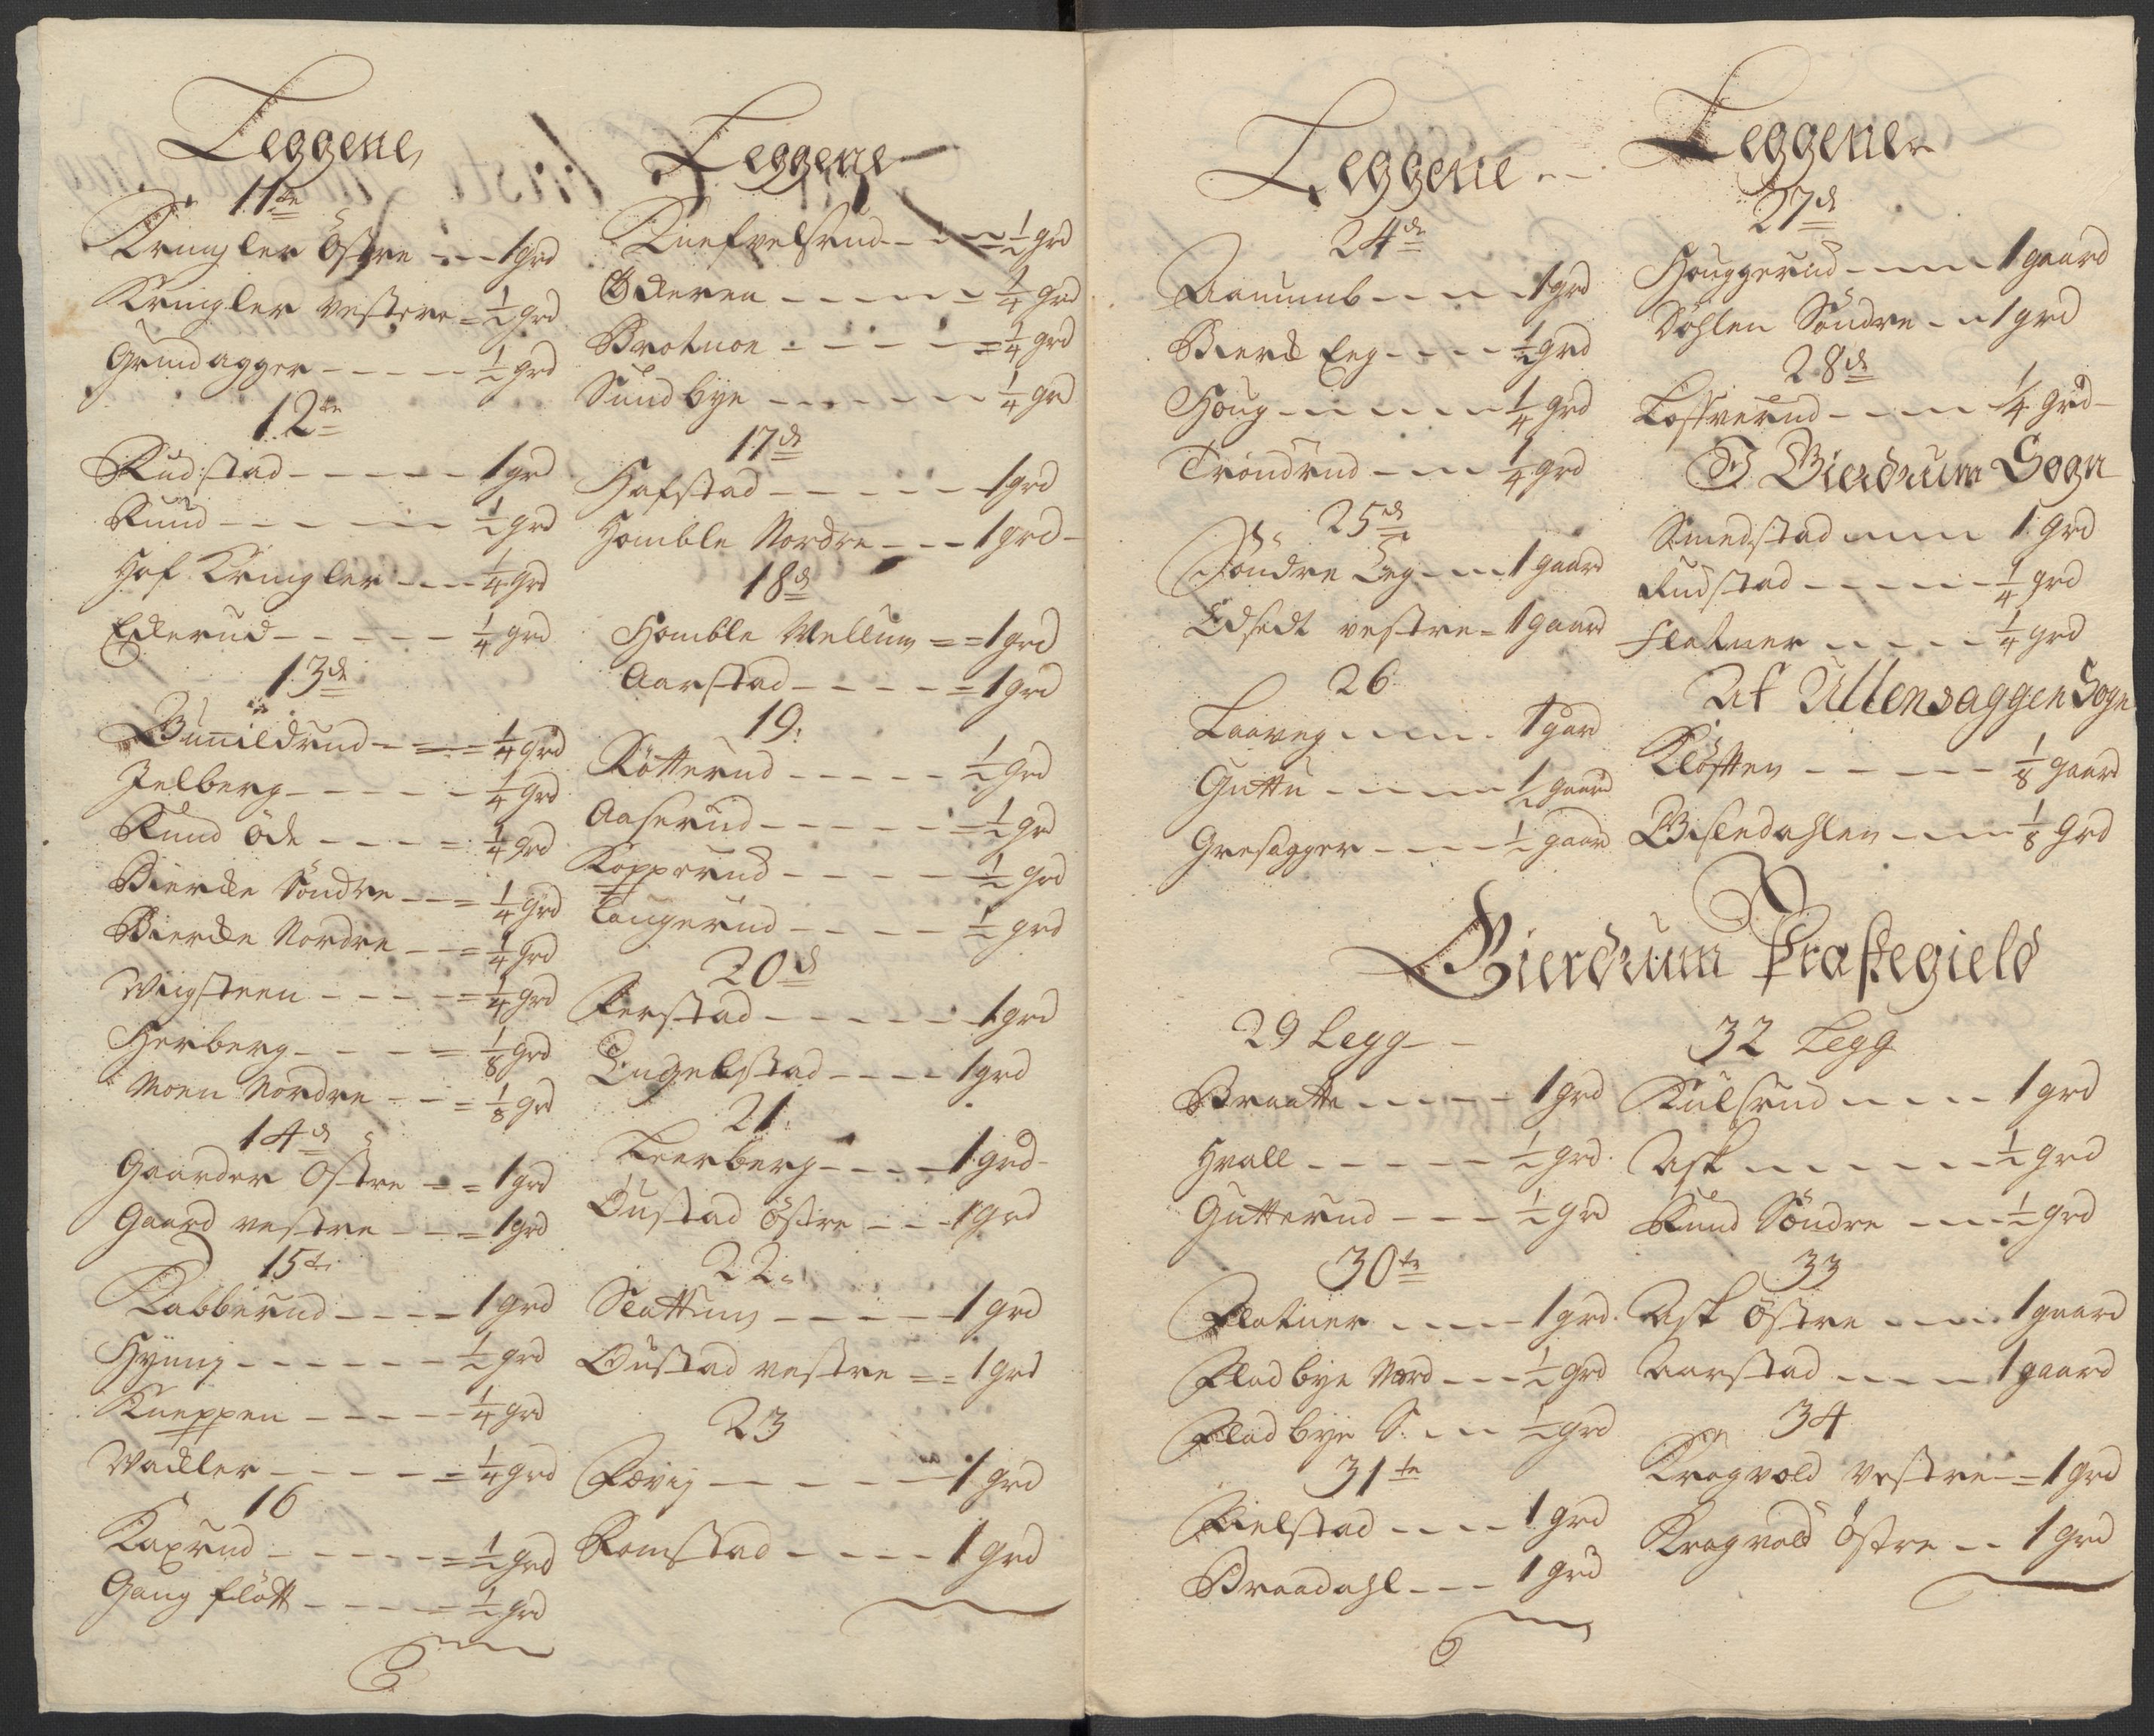 Leggene
11te
Kringler Östre - - - 1 grd
Kringler Vestere = 1/2 grd
Grindagger - - - - - 1/2 grd
12te
Rudstad - - - - - 1 grd
Ruud - - - - - - 1/2 grd
Hof Kringler - - - 1/4 grd
Ekerud - - - - - 1/4 grd
13de
Gunildrud - - = 1/4 grd
Jelberg - - - - - 1/4 grd
Ruud öde - - - = 1/4 grd
Bierke Söndre - - = 1/4 grd
Bierke Nordre - - = 1/4 grd
Wiigsteen - - - - = 1/4 grd
Herberg - - - - = 1/8 grd
Moen Nordre - - = 1/8 grd
14de
Gaarder Östre - = 1 grd
Gaard vestre - - = 1 grd
15de
Kabberud - - - - 1 grd
Hÿnnj - - - - - - 1/2 grd
Kneppen - - - - - 1/4 grd
Wakler - - - - - = 1/4 grd
16
Kaxrud - - - - - = 1/2 grd
Gaug flött - - - - = 1/2 grd
Leggene
Knefvelsrud - - = 1/2 grd
Ekeren - - - - - = 1/4 grd
Brotnoe - - - - - = 1/4 grd
Sundbye - - - - - - 1/4 grd
17de
Hafstad - - - - - - 1 grd
Homble Nordre - - - 1 grd -
18de
Homble Mellum = = 1 grd
Aarstad - - - - - = 1 grd
19.
Kötterud - - - - - 1/2 grd
Aaserud - - - - - = 1/2 grd
Kopperud - - - - - 1/2 grd
Taugerud - - - - - 1/2 grd
20de
Ferstad - - - - - - 1 grd
Engelstad - - - - 1 grd
21.
Leerberg - - - - 1 grd -
Oustad östre - - - 1 grd
22.
Slattum - - - - - 1 grd
Oustad vestre = = 1 grd
23
Fævig - - - - - - 1 grd
Romstad - - - - - 1 grd
Leggene - -
24de
Aamumb - - - - 1 grd
Bierk Eeg - - - - 1/2 grd
Houg - - - - - - 1/4 grd
Trondrud - - - 1/4 grd
25de
Söndre Eeg - - - 1 gaard
Edsedt vestre = 1 gaard
26
Laaveg - - - - - 1 gaard
Guttu - - - - - 1/2 gaard
Gresagger - - - - 1/2 gaard
Leggene
27de
Houggerud - - - - 1 gaard
Döhlen Söndre - - 1 grd
28de
Losverud - - - - 1/4 grd -
I Gierdrum Sogn
Smedstad - - - - 1 grd
Rudstad - - - - - 1/4 grd
Flatner - - - - - 1/4 grd
Af Ullensaggen Sogn
Klöften - - - - - 1/8 gaard
Gisledahlen - - - 1/8 grd
Gierdrum Præstegield
29 Legg - -
Braatte - - - - - 1 grd
Hvall - - - - - 1/2 grd.
Gutterud - - - 1/2 grd
30te
Flatner - - - - 1 grd.
Fladbye Nord - - - 1/2 grd
Fladbye S. - - - 1/2 grd
31te
Kielstad - - - - 1 grd
Braadahl - - - 1 grd
32 Legg
Kulsrud - - - - 1 grd
Ask - - - - - - - 1/2 grd
Ruud Söndre - - - 1/2 grd
33
Ask Östre - - - - 1 gaard
Aarstad - - - - 1 gaard
34
Krogvold vestre - = 1 grd
Krogvold Östre - - 1 grd